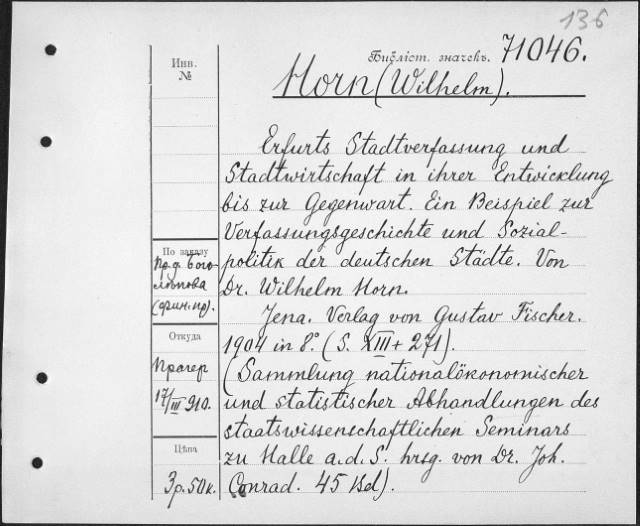 136
Библіот. значекъ. 71046.
Инв.
№
Horn (Wilhelm).
Erfurts Stadtverfassung und
Stadtwirtschaft in ihrer Entwicklung
bis zur Gegenwart. Ein Beispiel zur
Verfassungsgeschichte und Sozial-
politik der deutschen Städte. Von
Dr. Wilhelm Horn.
Jena. Verlag von Gustav Fischer.
1904 in 8°. (S. XIII + 271).
(Sammlung nationalökonomischer
und statistischer Abhandlungen des
staatswissenschaftlichen Seminars
zu Halle a.d.S. hrsg. von Dr. Joh.
Conrad. 45 Bd).
По заказу
Пр.д. Бого-
лѣпова
(фин.пр).
Откуда
Прагер
17/III 910.
Цѣна
3р.50к.